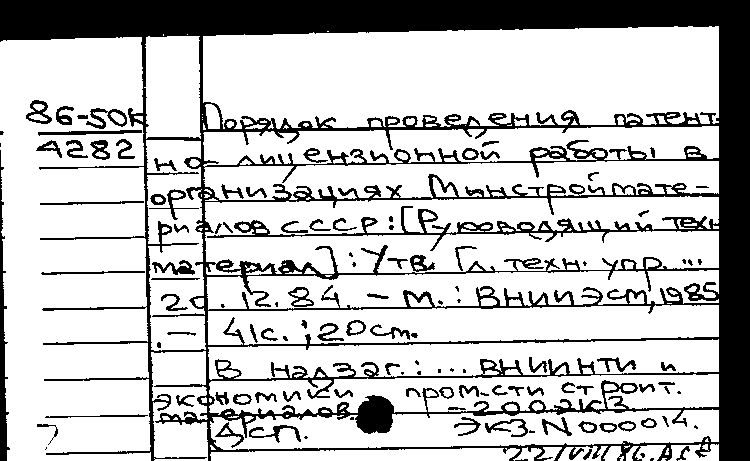 86-50к
4282
Порядок проведения патент-
но-лицензионной работы в
организациях Минстроймате-
риалов СССР: [Руководящий техн
материал]: Утв. Гл. техн. упр. ...
20.12.84. – М.: ВНИИЭСМ, 1985
. – 41с.; 20см.
В надзаг.: ... ВНИИНТИ и
экономики пром-сти строит.
материалов. – 200экз
Дсп. Экз. N 000014.
22/VIII 86.